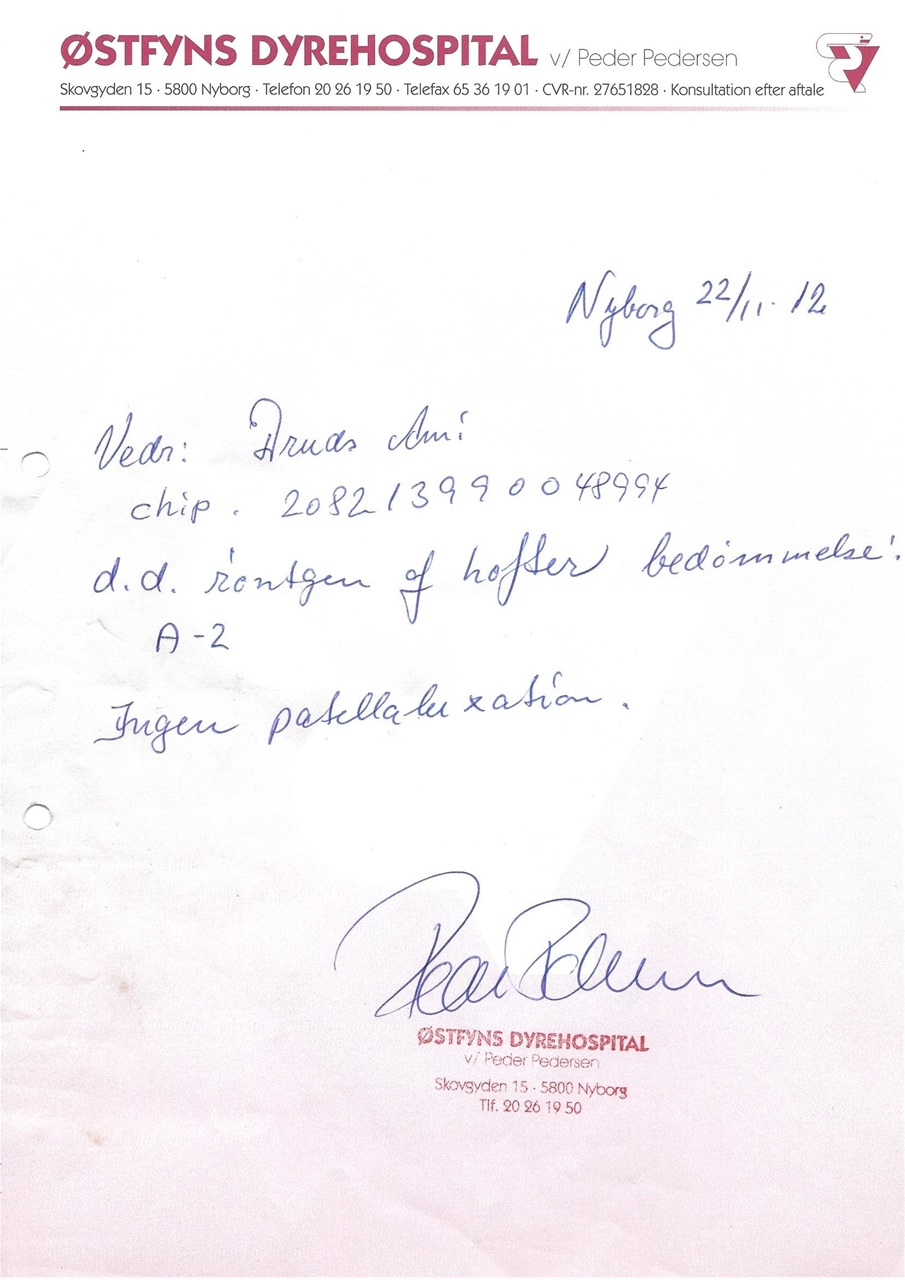 ØSTFYNS DYREHOSPITAL v/ Peder Pedersen
Skovgyden 15 · 5800 Nyborg · Telefon 20 26 19 50 · Telefax 65 36 19 01 · CVR-nr. 27651828 · Konsultation efter aftale
Nyborg 22/11-12
Vedr: Aruds Ami
chip. 208213990048994
d.d. röntgen af hofter bedömmelse:
A-2
Ingen patellaluxation.
ØSTFYNS DYREHOSPITAL
v/ Peder Pedersen
Skovgyden 15 · 5800 Nyborg
Tlf. 20 26 19 50